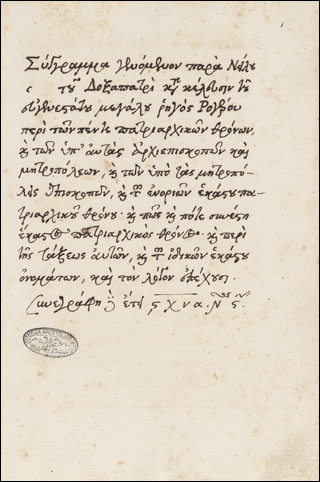 Σύγγραμμα γενόμενον παρὰ Νείλου
τοῦ Δοξαπατρὶ κτ̀ κέλευσιν τοῦ
εὐγενεστάτου μεγάλου ῥηγὸς Ρογερίου
περὶ τῶν πέντε πατριαρχικῶν θρόνων,
καὶ τῶν ὑπ' αυτὰς ἀρχιεπισκοπῶν καὶ
μητροπόλεων, καὶ τῶν ὑπὸ τὰς μητροπό-
λεις ἐπισκοπῶν, καὶ τ͂ ἐνοριῶν ἑκάστου πα-
τριαρχικοῦ θρόνου· καὶ πῶς καὶ πότε συνέστη
ἕκαστος πατριαρχικὸς θρόνος· καὶ περὶ
τῆς τάξεως αυτῶν, καὶ τ͂ ἰδικῶν ἑκάστου
ονομάτων, καὶ τὸν λόγον
συνεγράφη ἐτει ϛ χ ν α